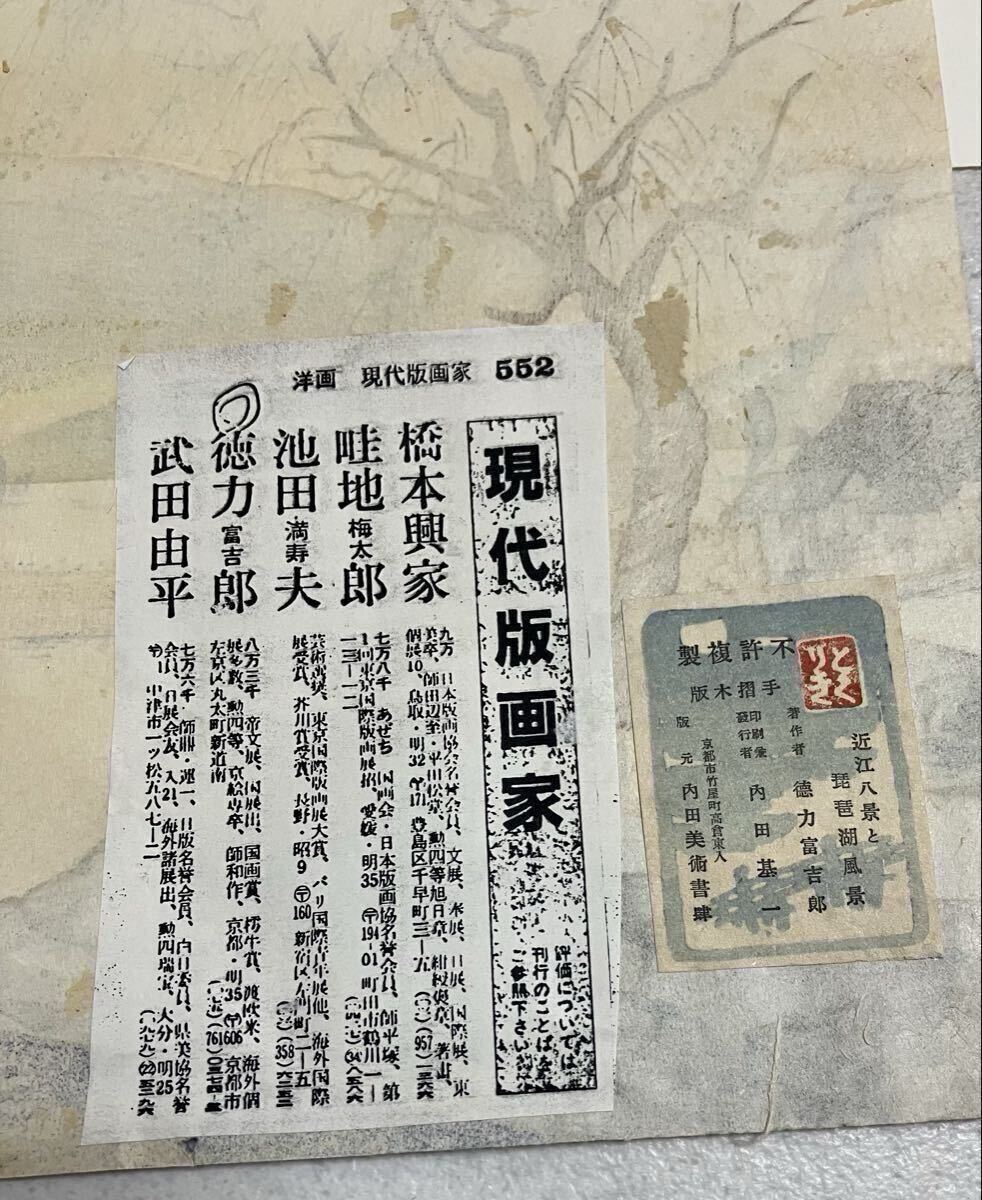 洋画 現代版画家 552
現代版画家
評価については
刊行のことばを
ご参照下さい
橋本興家
九万 日本版画協会名誉会員、文展、日展、国際展、東
美卒、師田辺至・平田松堂、勲四等旭日章、紺綬褒章、著書、
個展10、鳥取・明32 〒171 豊島区千早町三
畦地梅太郎
七万八千 あぜち 国画会・日本版画協名誉会員、師平塚、第
1回東京国際版画展招、愛媛・明35 〒194-01 町田市鶴川一
池田満寿夫
芸術選奨、東京国際版画展大賞、パリ国際青年展他、海外国際
展受賞、芥川賞受賞、長野・昭9 〒160 新宿区左門町二-五
徳力富吉郎
八万三千 帝文展、国展出、国画賞、樗牛賞、渡欧米、海外個
展多数、勲四等、京絵専卒、師和作、京都・明35 〒606 京都市
左京区丸太町新道南
武田由平
七万六千 日版名誉会員、白日委員、県美協名誉
会員、日展会友、入21、海外諸展出、勲四瑞宝、大分・明25
中津市一ッ松九八七-二
近江八景と
琵琶湖風景
とくりき
不許複製
手摺木版
著作者 德力富吉郎
印刷兼發行者 內田基一
京都市竹屋町高倉東入
版元 內田美術書肆